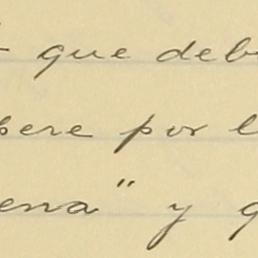 que deb
pere por l
ena" y q